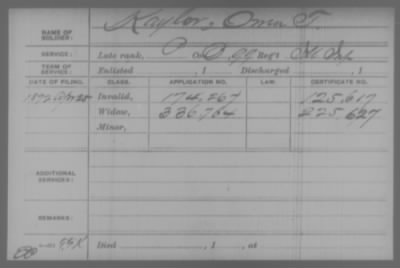 NAME OF SOLDIER: Kaylor, Omer T.
SERVICE: Late rank, P Co. D, 99 Reg't Ill Inf
TERM OF SERVICE: Enlisted , 1 Discharged , 1
DATE OF FILING. CLASS. APPLICATION NO. LAW. CERTIFICATE NO.
Invalid, 174,267 125,617
Widow, 336,764 225,627
Minor,
ADDITIONAL SERVICES:
REMARKS:
Died , 1 , at